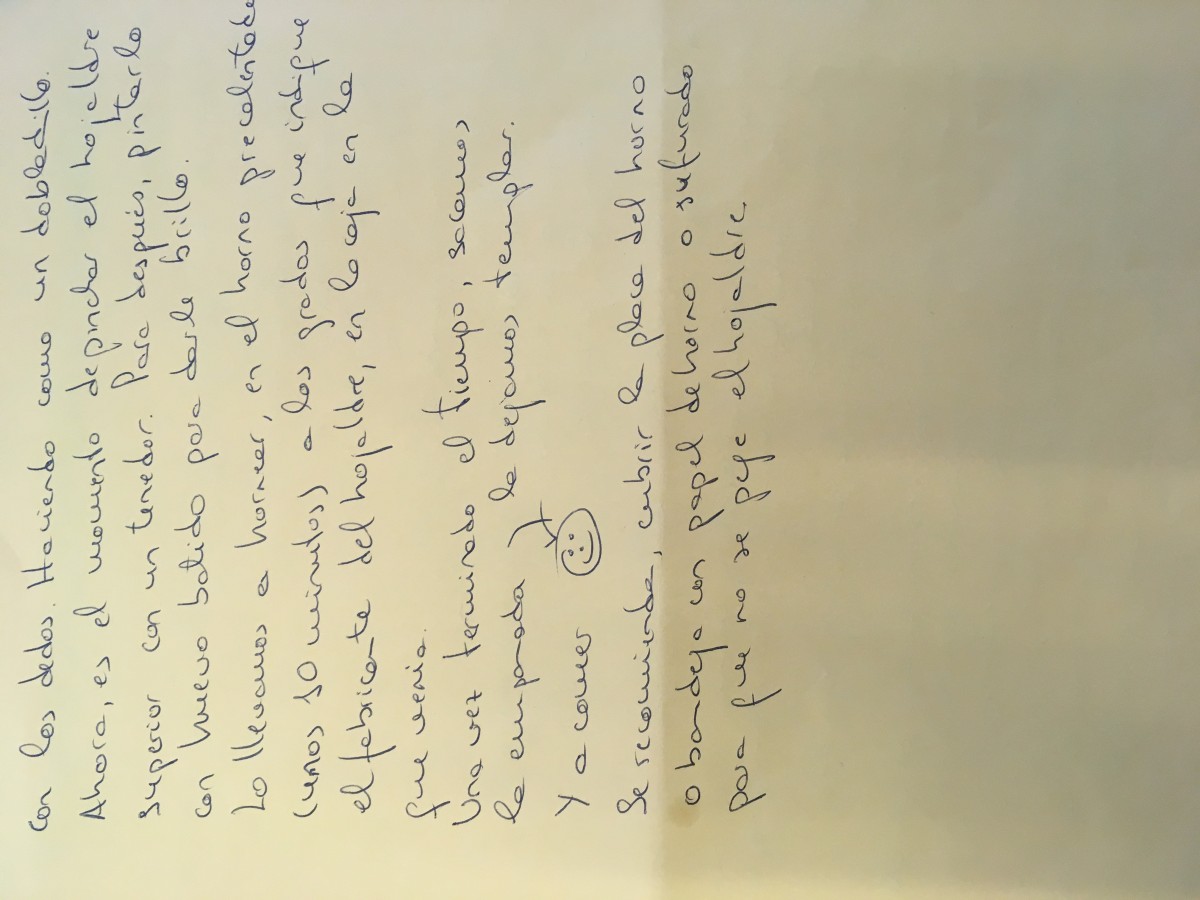 con los dedos. Haciendo como un dobladillo.
Ahora, es el momento de pinchar el hojaldre
superior con un tenedor. Para después, pintarlo
con huevo batido para darle brillo.
Lo llevamos a hornear, en el horno precalentado
(unos 50 minutos) a los grados que indique
el fabricante del hojaldre, en la caja en la
que venia.
Una vez terminado el tiempo, sacamos
la empanada y la dejamos templar.
Y a comer
Se recomienda, cubrir la placa del horno
o bandeja con papel de horno o sufurado
para que no se pege el hojaldre